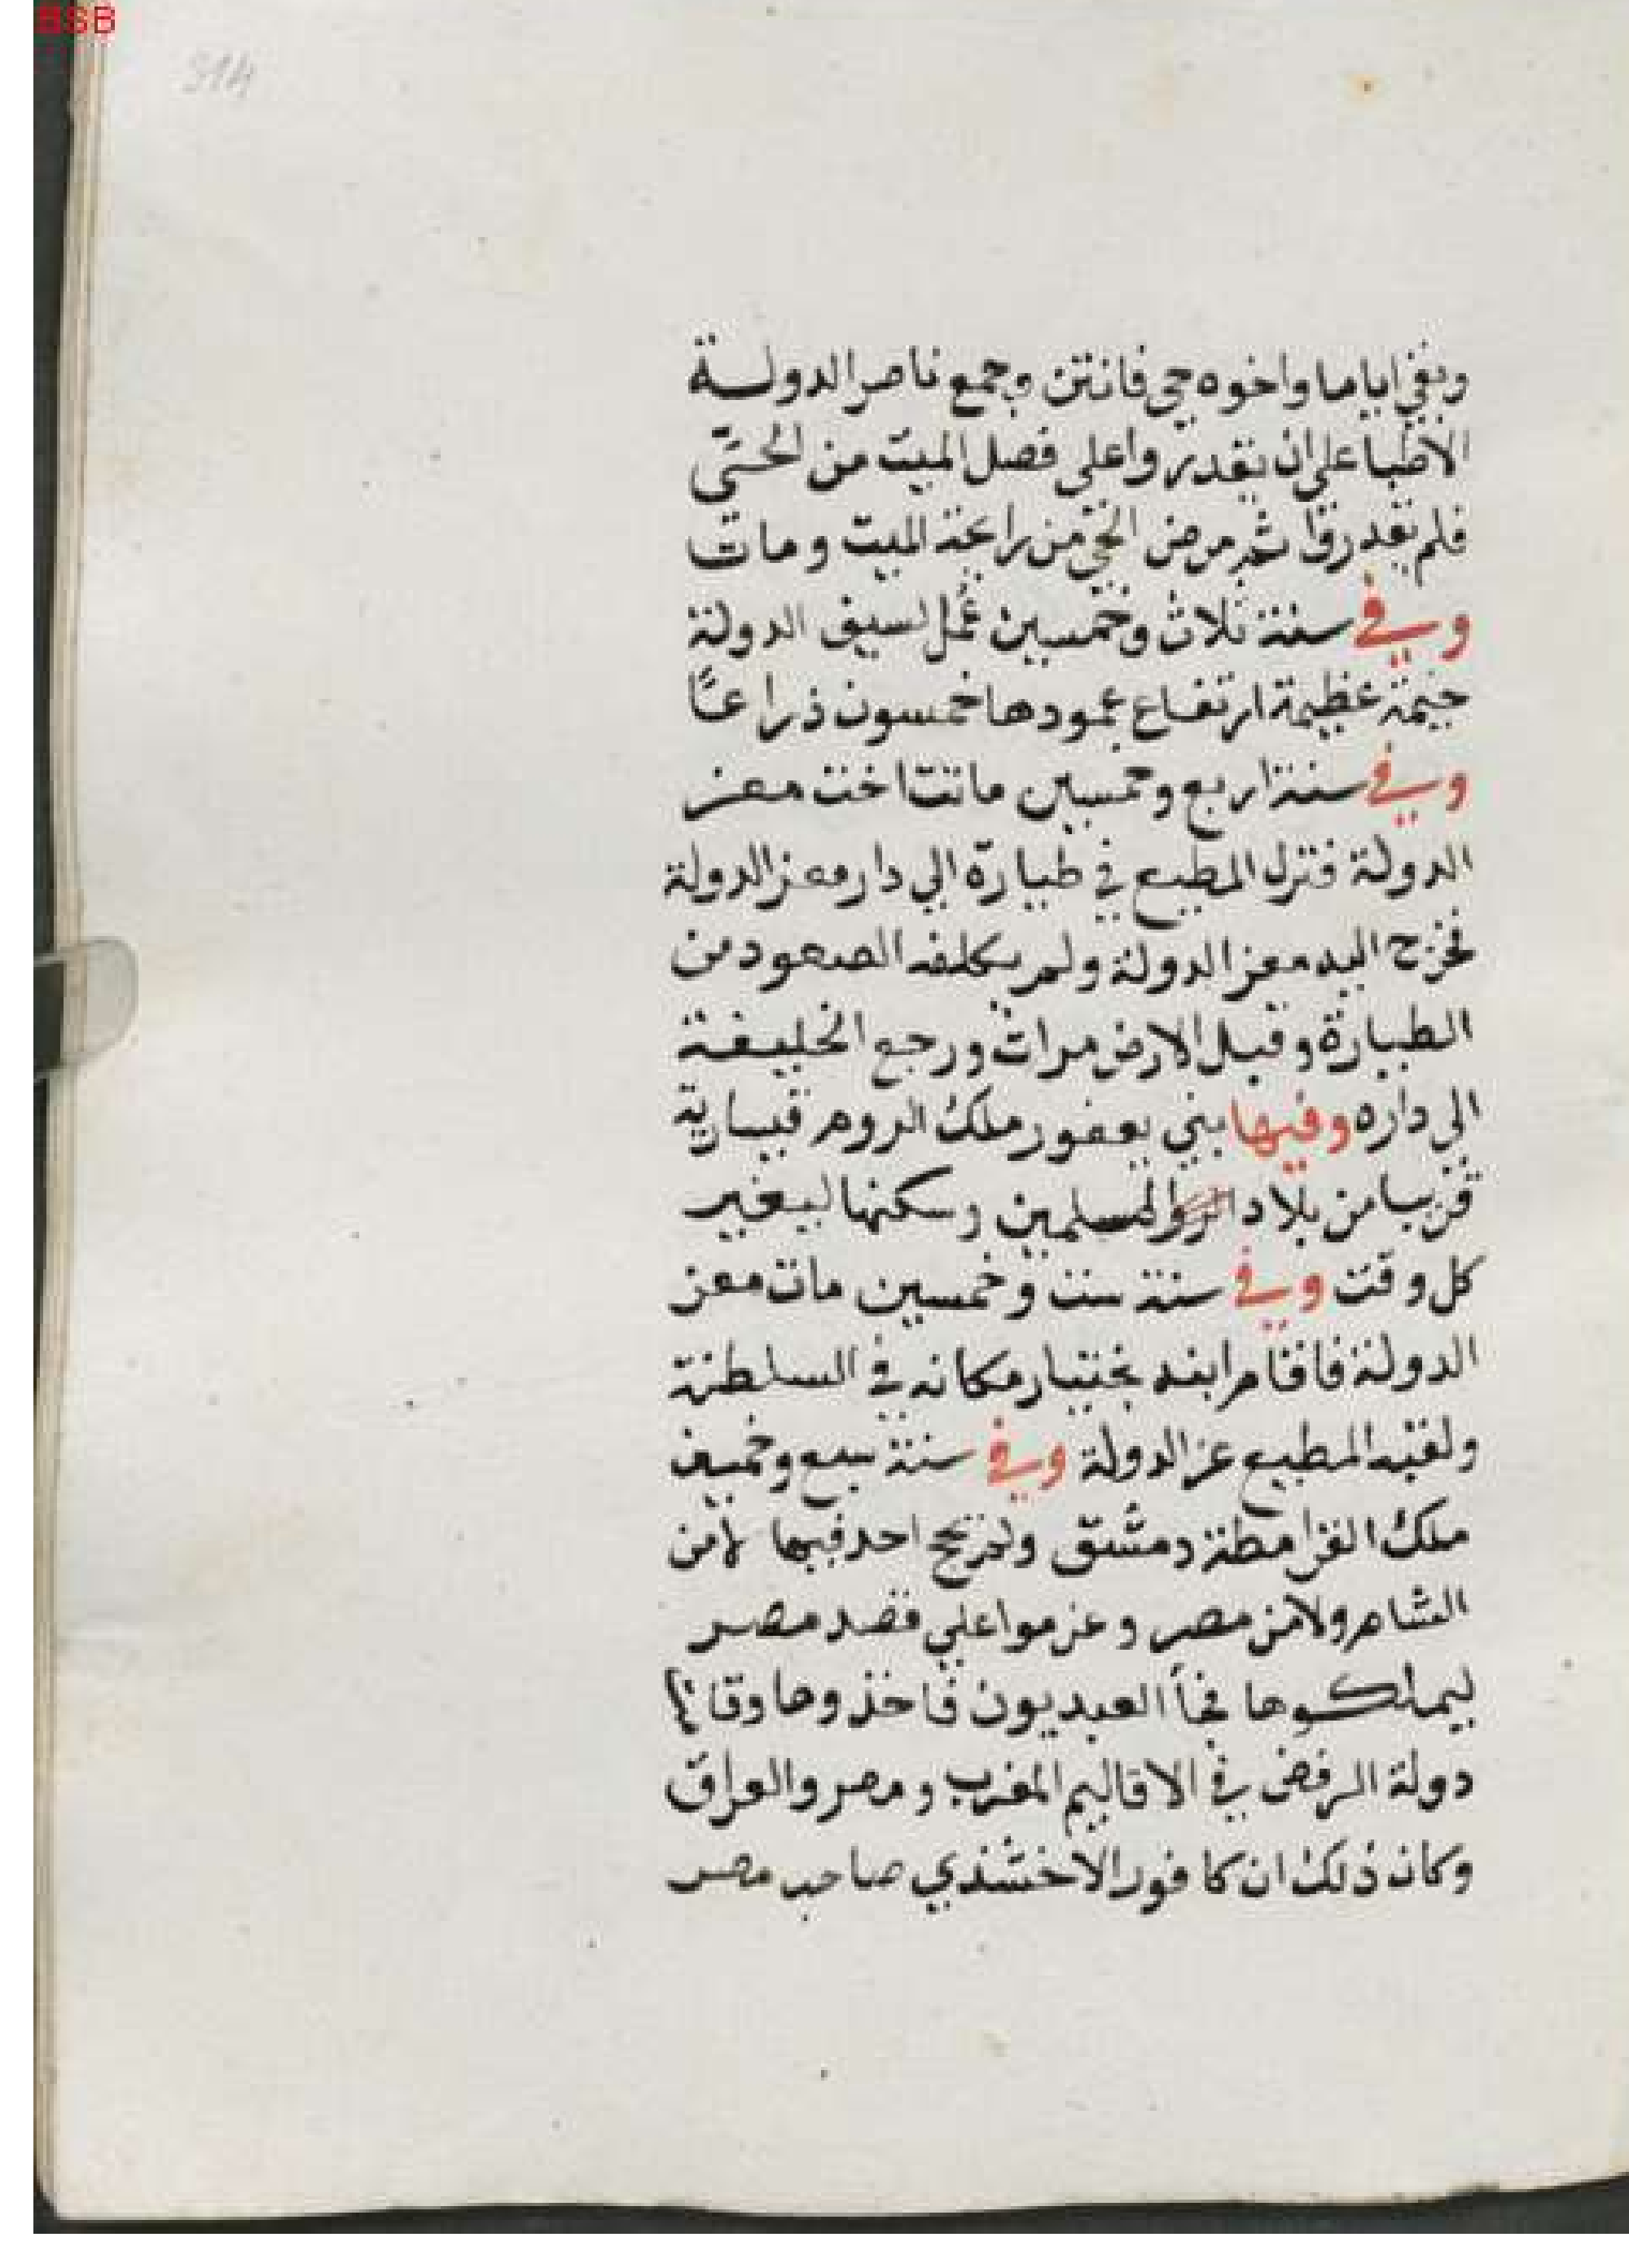 BSB
514
وبقي اياما واخوه حي فانتن وجمع ناصر الدولة
الاطبا على ان يقدروا على فصل الميت من الحي
فلم يقدروا ثم مرض الحي من رائحة الميت ومات
وفي سنة ثلاث وخمسين عمل لسيف الدولة
خيمة عظيمة ارتفاع عمودها خمسون ذراعا
وفي سنة اربع وخمسين ماتت اخت معز
الدولة فنزل المطيع في طيارة الي دار معز الدولة
فخرج اليه معز الدولة ولم يكلفه الصعود من
الطيارة وقبل الارض مرات ورجع الخليفة
الي داره وفيها بني يعفور ملك الروم قيسارية
قريبا من بلاد المسلمين وسكنها ليغير
كل وقت وفي سنة ست وخمسين مات معز
الدولة فاقام ابنه بختيار مكانه في السلطنة
ولقبه المطيع عز الدولة وفي سنة سبع وخمسين
ملك القرامطة دمشق ولم يحج احد فيها لا من
الشام ولا من مصر وعزموا علي قصد مصر
ليملكوها فجأ العبيديون فاخذوها وقامت
دولة الرفض في الاقاليم المغرب ومصر والعراق
وكان ذلك ان كافور الاخشذي صاحب مصر